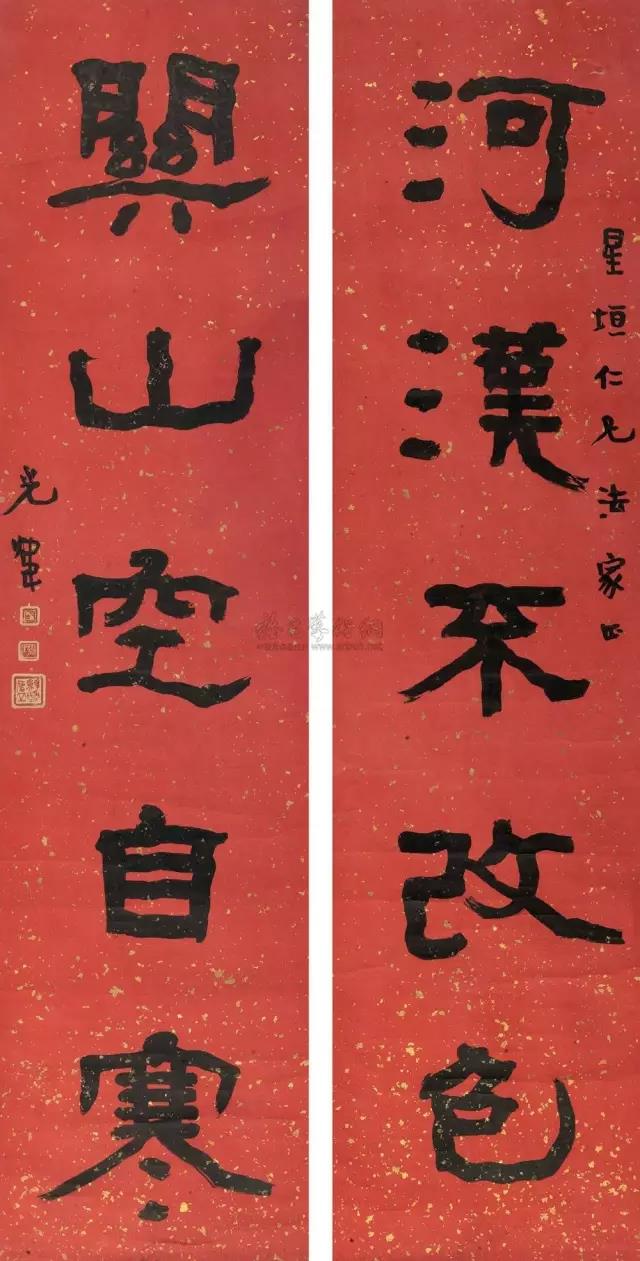 河漢不改色
星垣仁兄法家正
關山空自寒
光煒
www.artxun.net